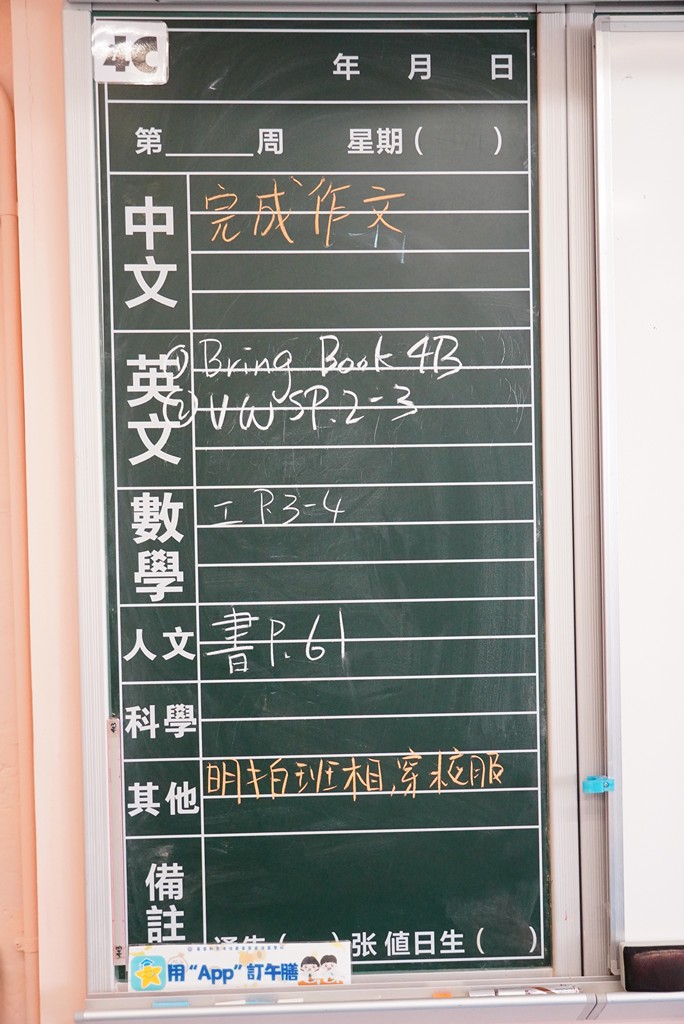 4C
年 月 日
第______周 星期( )
中文
完成作文
英文
① Bring Book 4B
② VWS P.2-3
數學
工 P.3-4
人文
書P.61
科學
其他
明拍班相,穿校服
備註
通告( )张 值日生( )
用“App”訂午膳